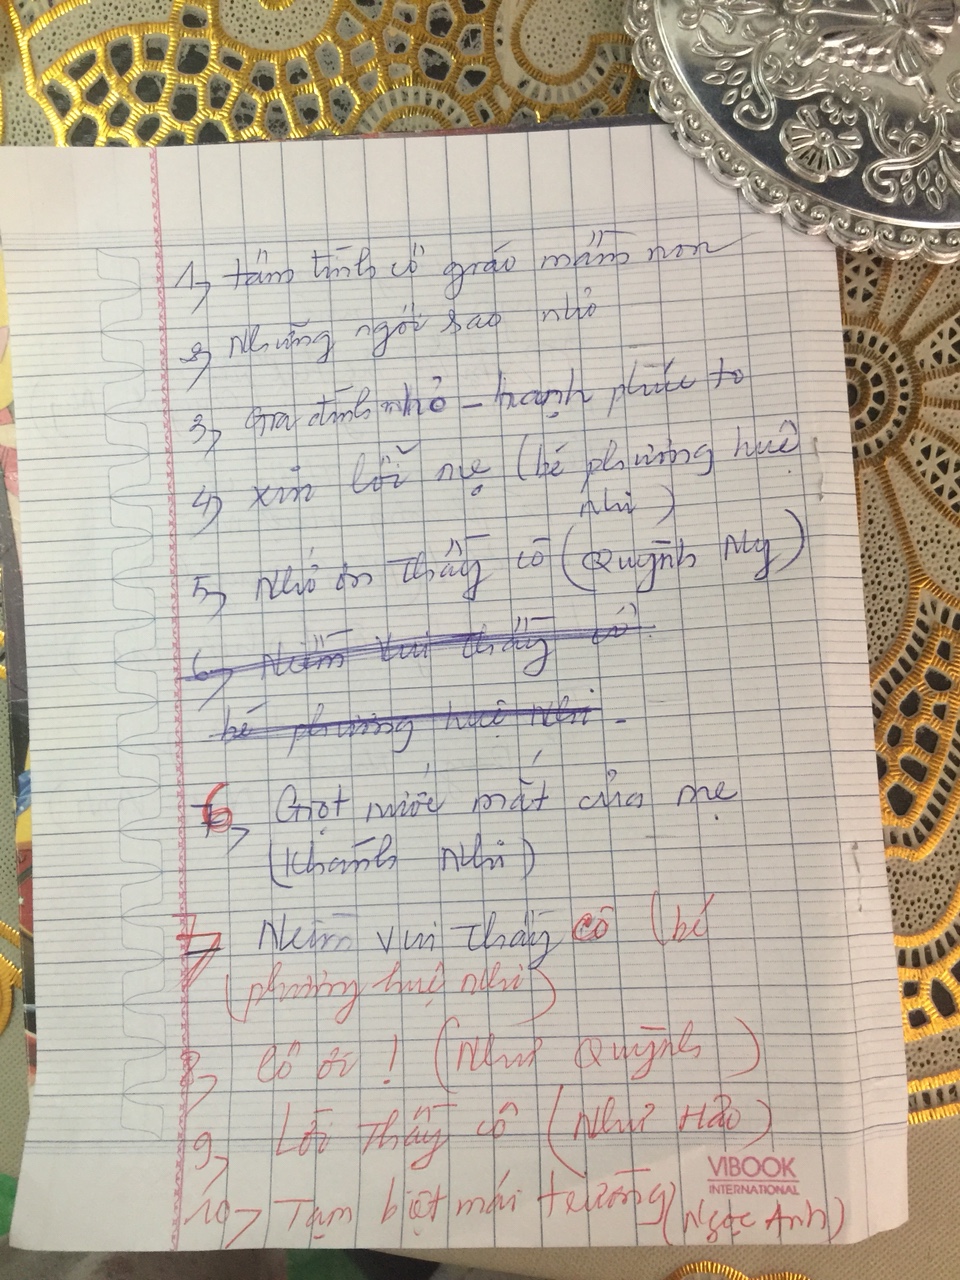 1, tâm tình cô giáo mầm non
2, Những ngôi sao nhỏ
3, Gia đình nhỏ - hạnh phúc to
4, xin lỗi mẹ (bé phương huệ
nhi)
5, Nhớ ơn thầy cô (Quỳnh My)
6, Niềm vui thầy cô
bé phương huệ Nhi
6, Giọt nước mắt của mẹ
(Khánh Nhi)
7, Niềm vui thầy cô (bé
(phương huệ nhi)
8, Cô ơi ! (Như Quỳnh)
9, Lời Thầy cô (Như Hảo)
10, Tạm biệt mái trường (Ngọc Anh)
VIBOOK
INTERNATIONAL